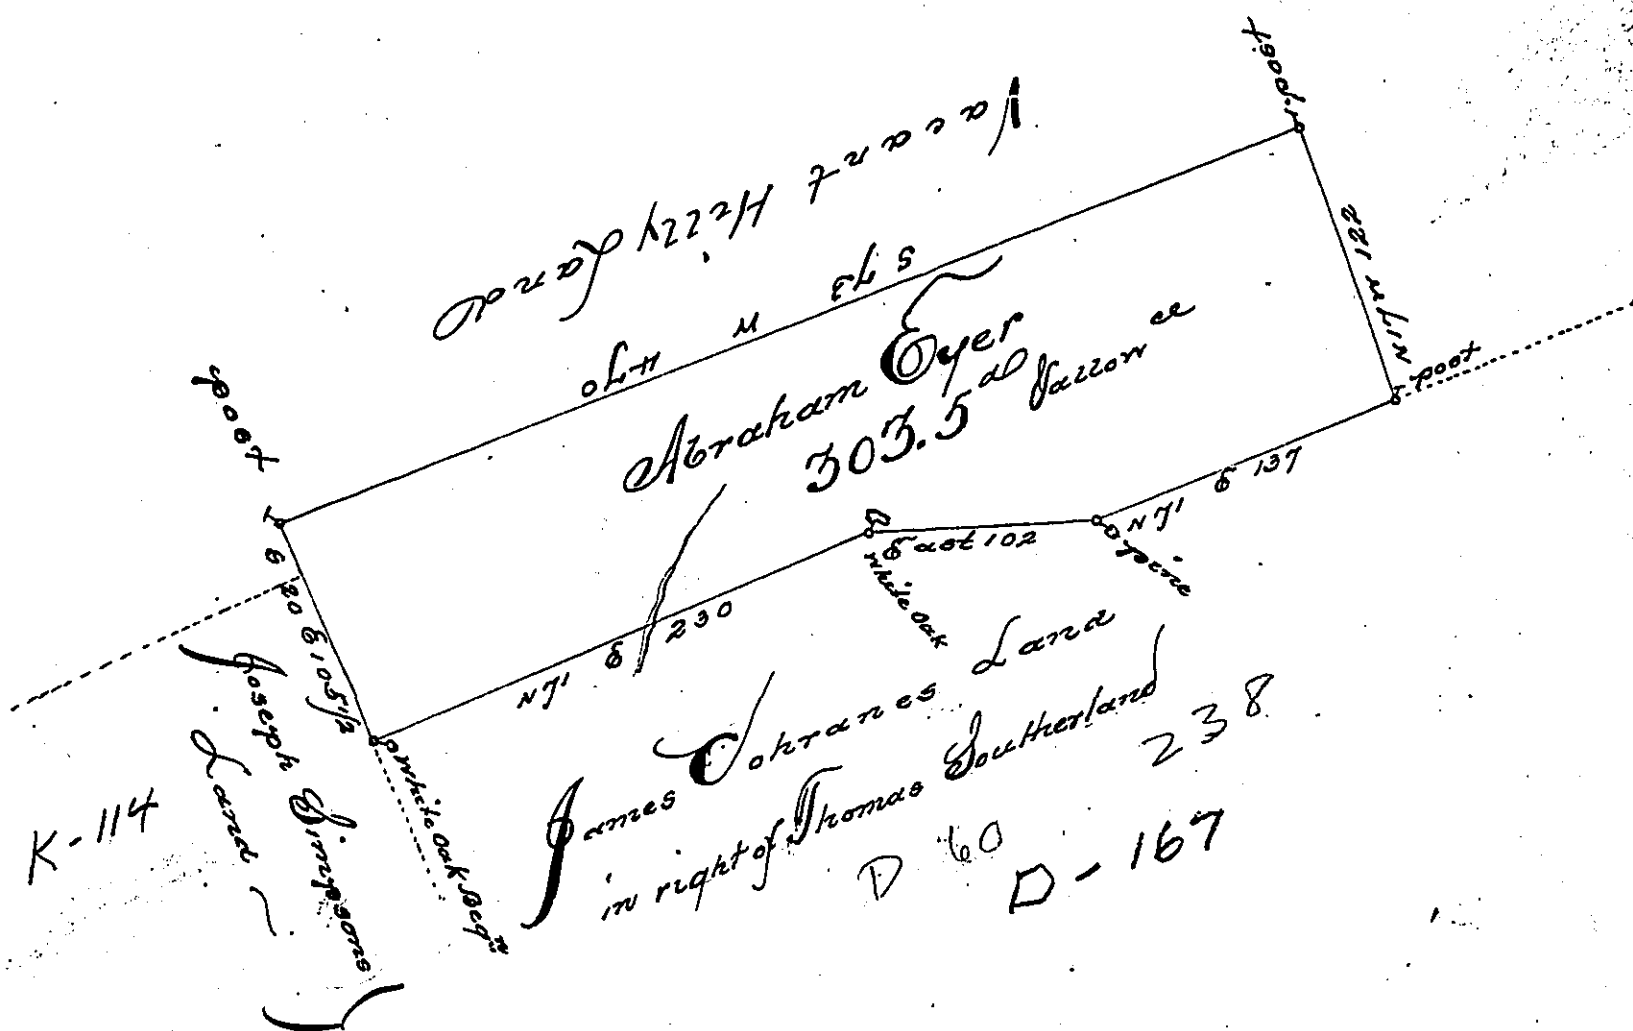 Vacant Hilly Land
post
post
S 73 W 470
N 17 W 122
post
Abraham Eyer
303.5 al Vallowce
N 71 E 137
pine
East 102
White Oak
N 71 E 230
S 20 E 105 1/2
White Oak Beg.n
Joseph Simpsons
Land
James Cohranes Land
in right of Thomas Southerland
K-114
D 60
238
D-167